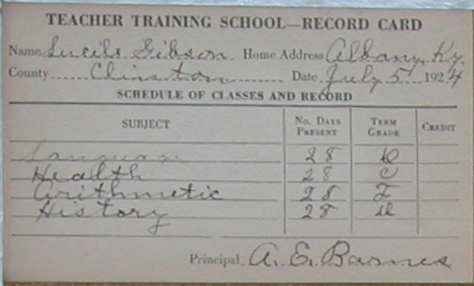 TEACHER TRAINING SCHOOL—RECORD CARD
Name Lucile Gibson Home Address Albany, Ky.
County Clinton Date July 5 1924
SCHEDULE OF CLASSES AND RECORD
SUBJECT No. Days Present Term Grade Credit
Language 28
Health 28 C
Arithmetic 28
History 28
Principal A. E. Barnes